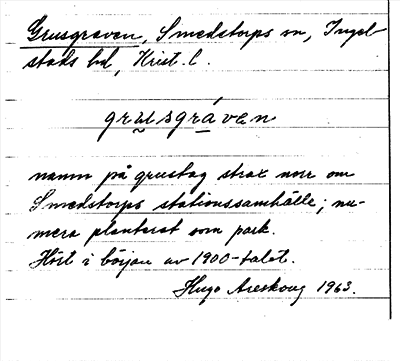 Grusgraven, Smedstorps sn, Ingel-
stads hd, Krist. l.
grusgráven
namn på grustag strax norr om
Smedstorps stationssamhälle; nu-
mera planterat som park.
Hört i början av 1900-talet.
Hugo Areskoug 1963.